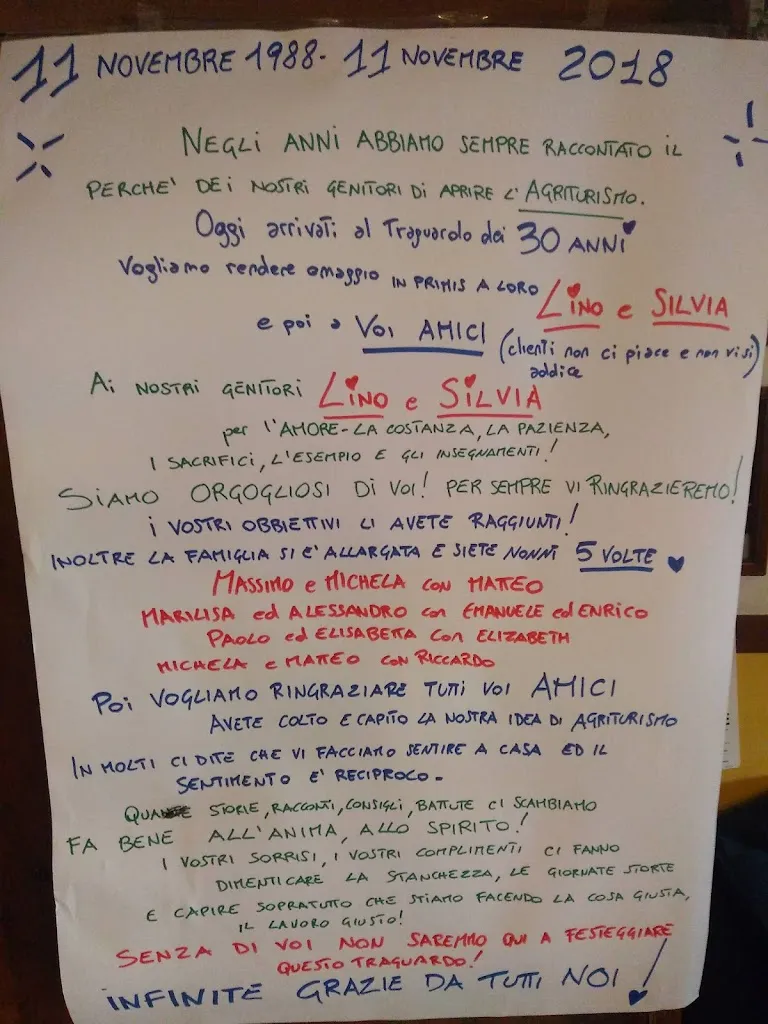 11 NOVEMBRE 1988- 11 NOVEMBRE 2018
NEGLI ANNI ABBIAMO SEMPRE RACCONTATO IL
PERCHE' DEI NOSTRI GENITORI DI APRIRE L'AGRITURISMO.
Oggi arrivati al Traguardo dei 30 ANNI
Vogliamo rendere omaggio IN PRIMIS A LORO LINO e SILVIA
e poi a VOI AMICI (clienti non ci piace e non vi si
addice)
AI NOSTRI GENITORI LINO e SILVIA
per l'AMORE-LA COSTANZA, LA PAZIENZA,
I SACRIFICI, L'ESEMPIO E GLI INSEGNAMENTI!
SIAMO ORGOGLIOSI DI VOI! PER SEMPRE VI RINGRAZIEREMO!
I VOSTRI OBBIETTIVI LI AVETE RAGGIUNTI!
INOLTRE LA FAMIGLIA SI E' ALLARGATA E SIETE NONNI 5 VOLTE
MASSIMO e MICHELA con MATTEO
MARILISA ed ALESSANDRO con EMANUELE ed ENRICO
PAOLO ed ELISABETTA con ELIZABETH
MICHELA e MATTEO con RICCARDO
POI VOGLIAMO RINGRAZIARE TUTTI VOI AMICI
AVETE COLTO E CAPITO LA NOSTRA IDEA DI AGRITURISMO
IN MOLTI CI DITE CHE VI FACCIAMO SENTIRE A CASA ED IL
SENTIMENTO E' RECIPROCO-
QUANTE STORIE, RACCONTI, CONSIGLI, BATTUTE CI SCAMBIAMO
FA BENE ALL'ANIMA, ALLO SPIRITO!
I VOSTRI SORRISI, I VOSTRI COMPLIMENTI CI FANNO
DIMENTICARE LA STANCHEZZA, LE GIORNATE STORTE
E CAPIRE SOPRATUTTO CHE STIAMO FACENDO LA COSA GIUSTA,
IL LAVORO GIUSTO!
SENZA DI VOI NON SAREMMO QUI A FESTEGGIARE
QUESTO TRAGUARDO!
INFINITE GRAZIE DA TUTTI NOI!